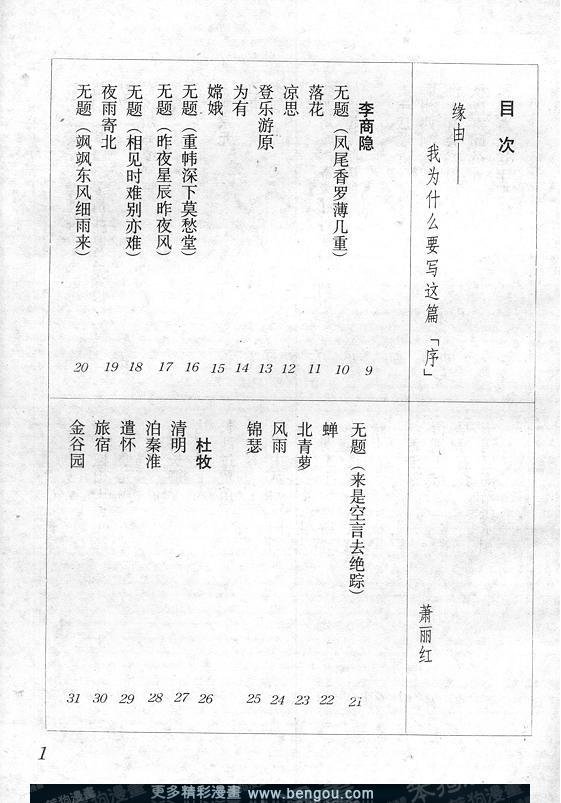 目次
缘由——
我为什么要写这篇「序」
萧丽红
李商隐 9
无题（凤尾香罗薄几重） 10
落花 11
凉思 12
登乐游原 13
为有 14
嫦娥 15
无题（重帏深下莫愁堂） 16
无题（昨夜星辰昨夜风） 17
无题（相见时难别亦难） 18
夜雨寄北 19
无题（飒飒东风细雨来） 20
无题（来是空言去绝踪） 21
蝉 22
北青萝 23
风雨 24
锦瑟 25
杜牧 26
清明 27
泊秦淮 28
遣怀 29
旅宿 30
金谷园 31
1
更多精彩漫畫 www.bengou.com